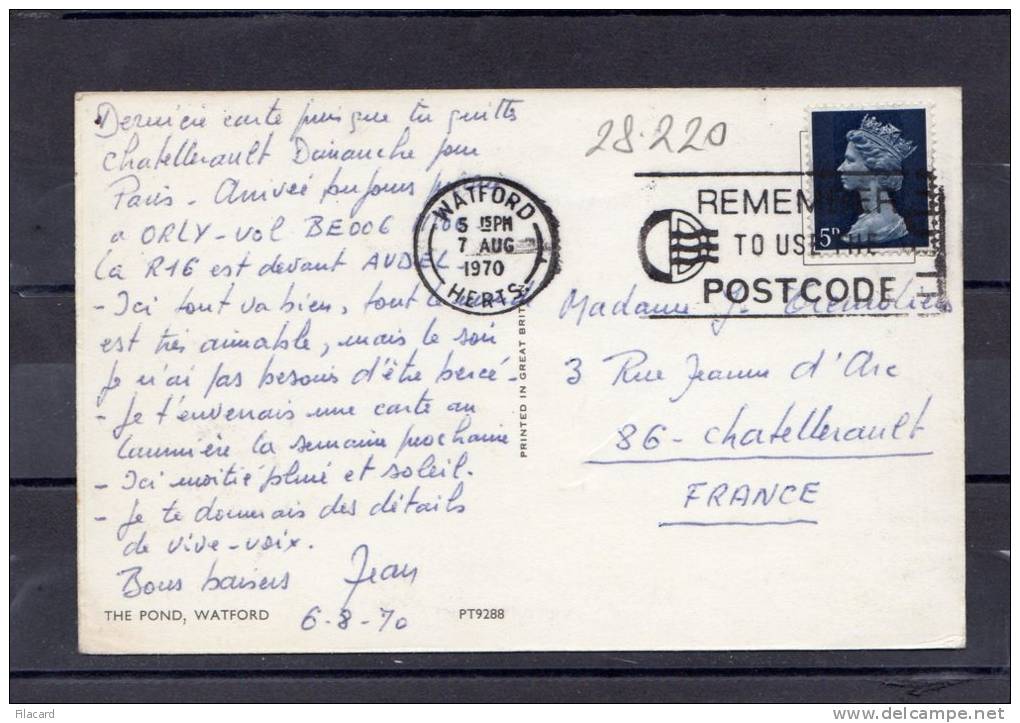 Dernière carte puisque tu quittes
Chatellerault Dimanche pour
Paris - Arrivée toujours
a ORLY - vol BE006
La R16 est devant AUDEL -
- Ici tout va bien, tout le
est très aimable, mais le soir
Je n'ai pas besoins d'être bercé -
- Je t'enverrais une carte au
la semaine prochaine
- Ici moitié pluie et soleil.
- Je te donnerais des détails
de vive-voix.
Bons baisers Jean
6-8-70
THE POND, WATFORD
PT9288
PRINTED IN GREAT BRIT
28.220
WATFORD
5 15 PM
7 AUG
1970
HERTS.
REMEMBER
TO USE THE
POSTCODE
5D
Madame
3 Rue Jeanne d'Arc
86 - Chatellerault
FRANCE
Filacard
www.delcampe.net